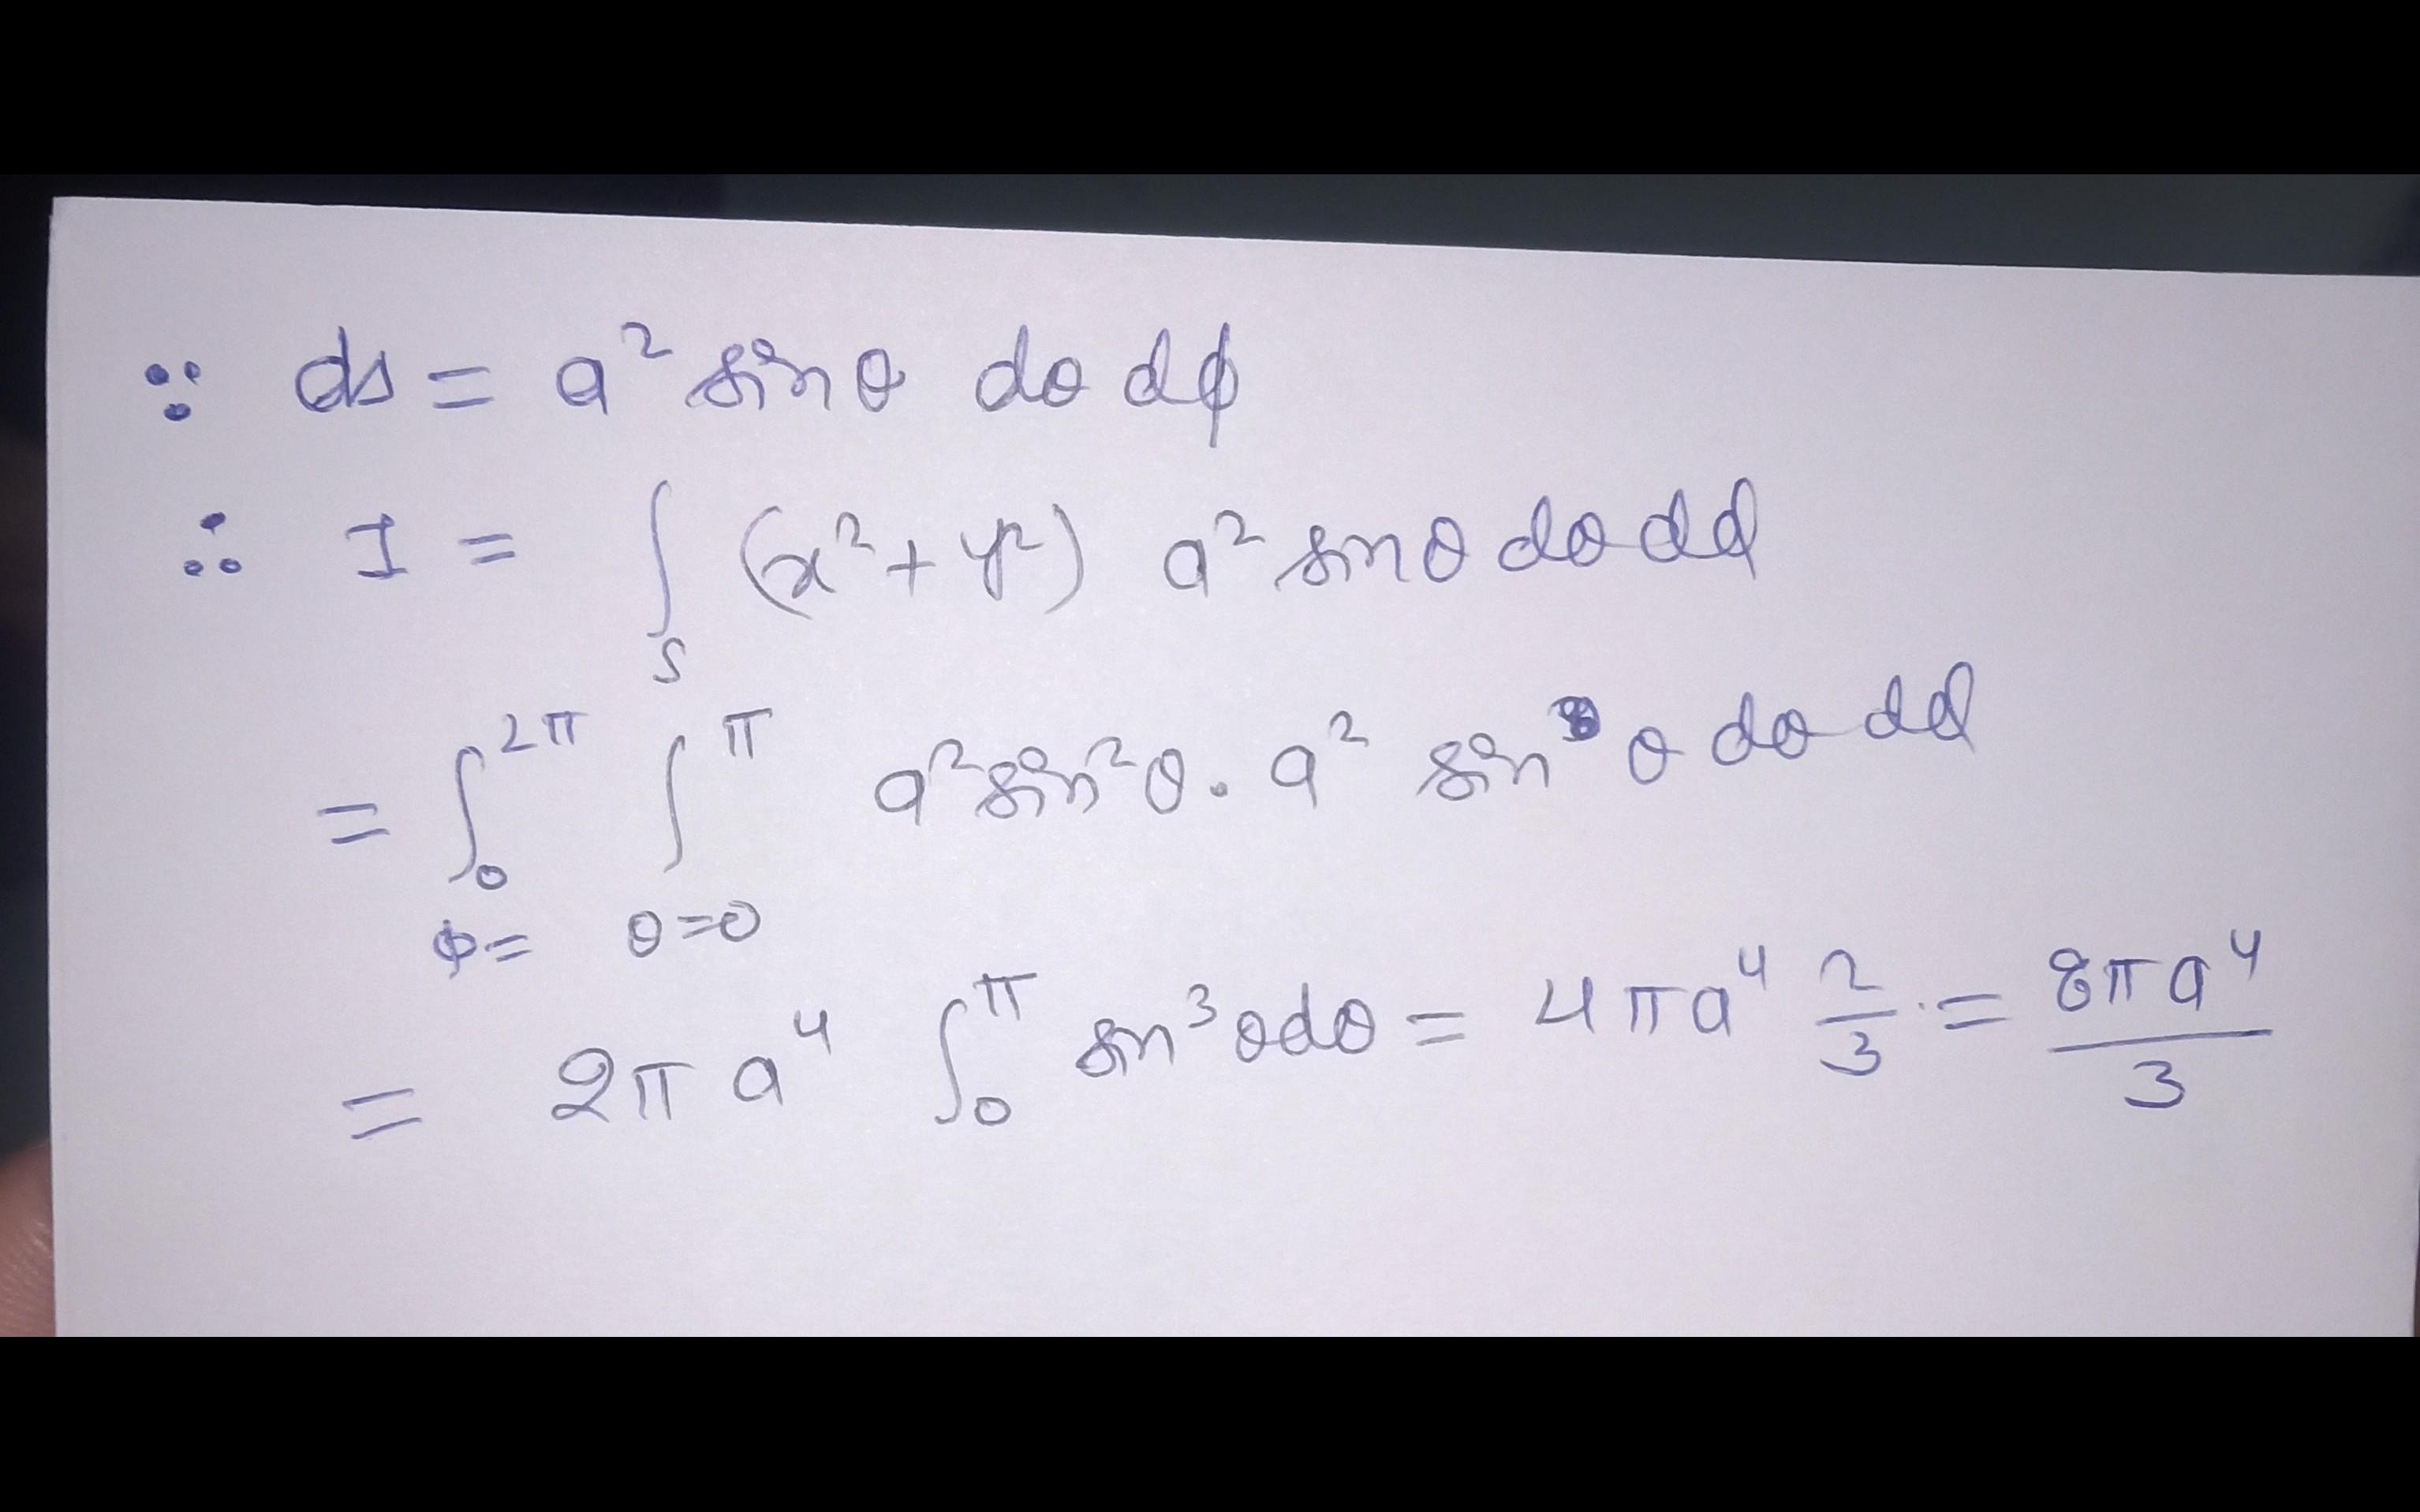 ∵ ds = a² sinθ dθ dϕ
∴ I = ∫_S (x² + y²) a² sinθ dθ dϕ
= ∫_{ϕ=0}^{2π} ∫_{θ=0}^{π} a² sin²θ . a² sin θ dθ dϕ
= 2π a⁴ ∫_0^π sin³θ dθ = 4πa⁴ 2/3 = 8πa⁴/3